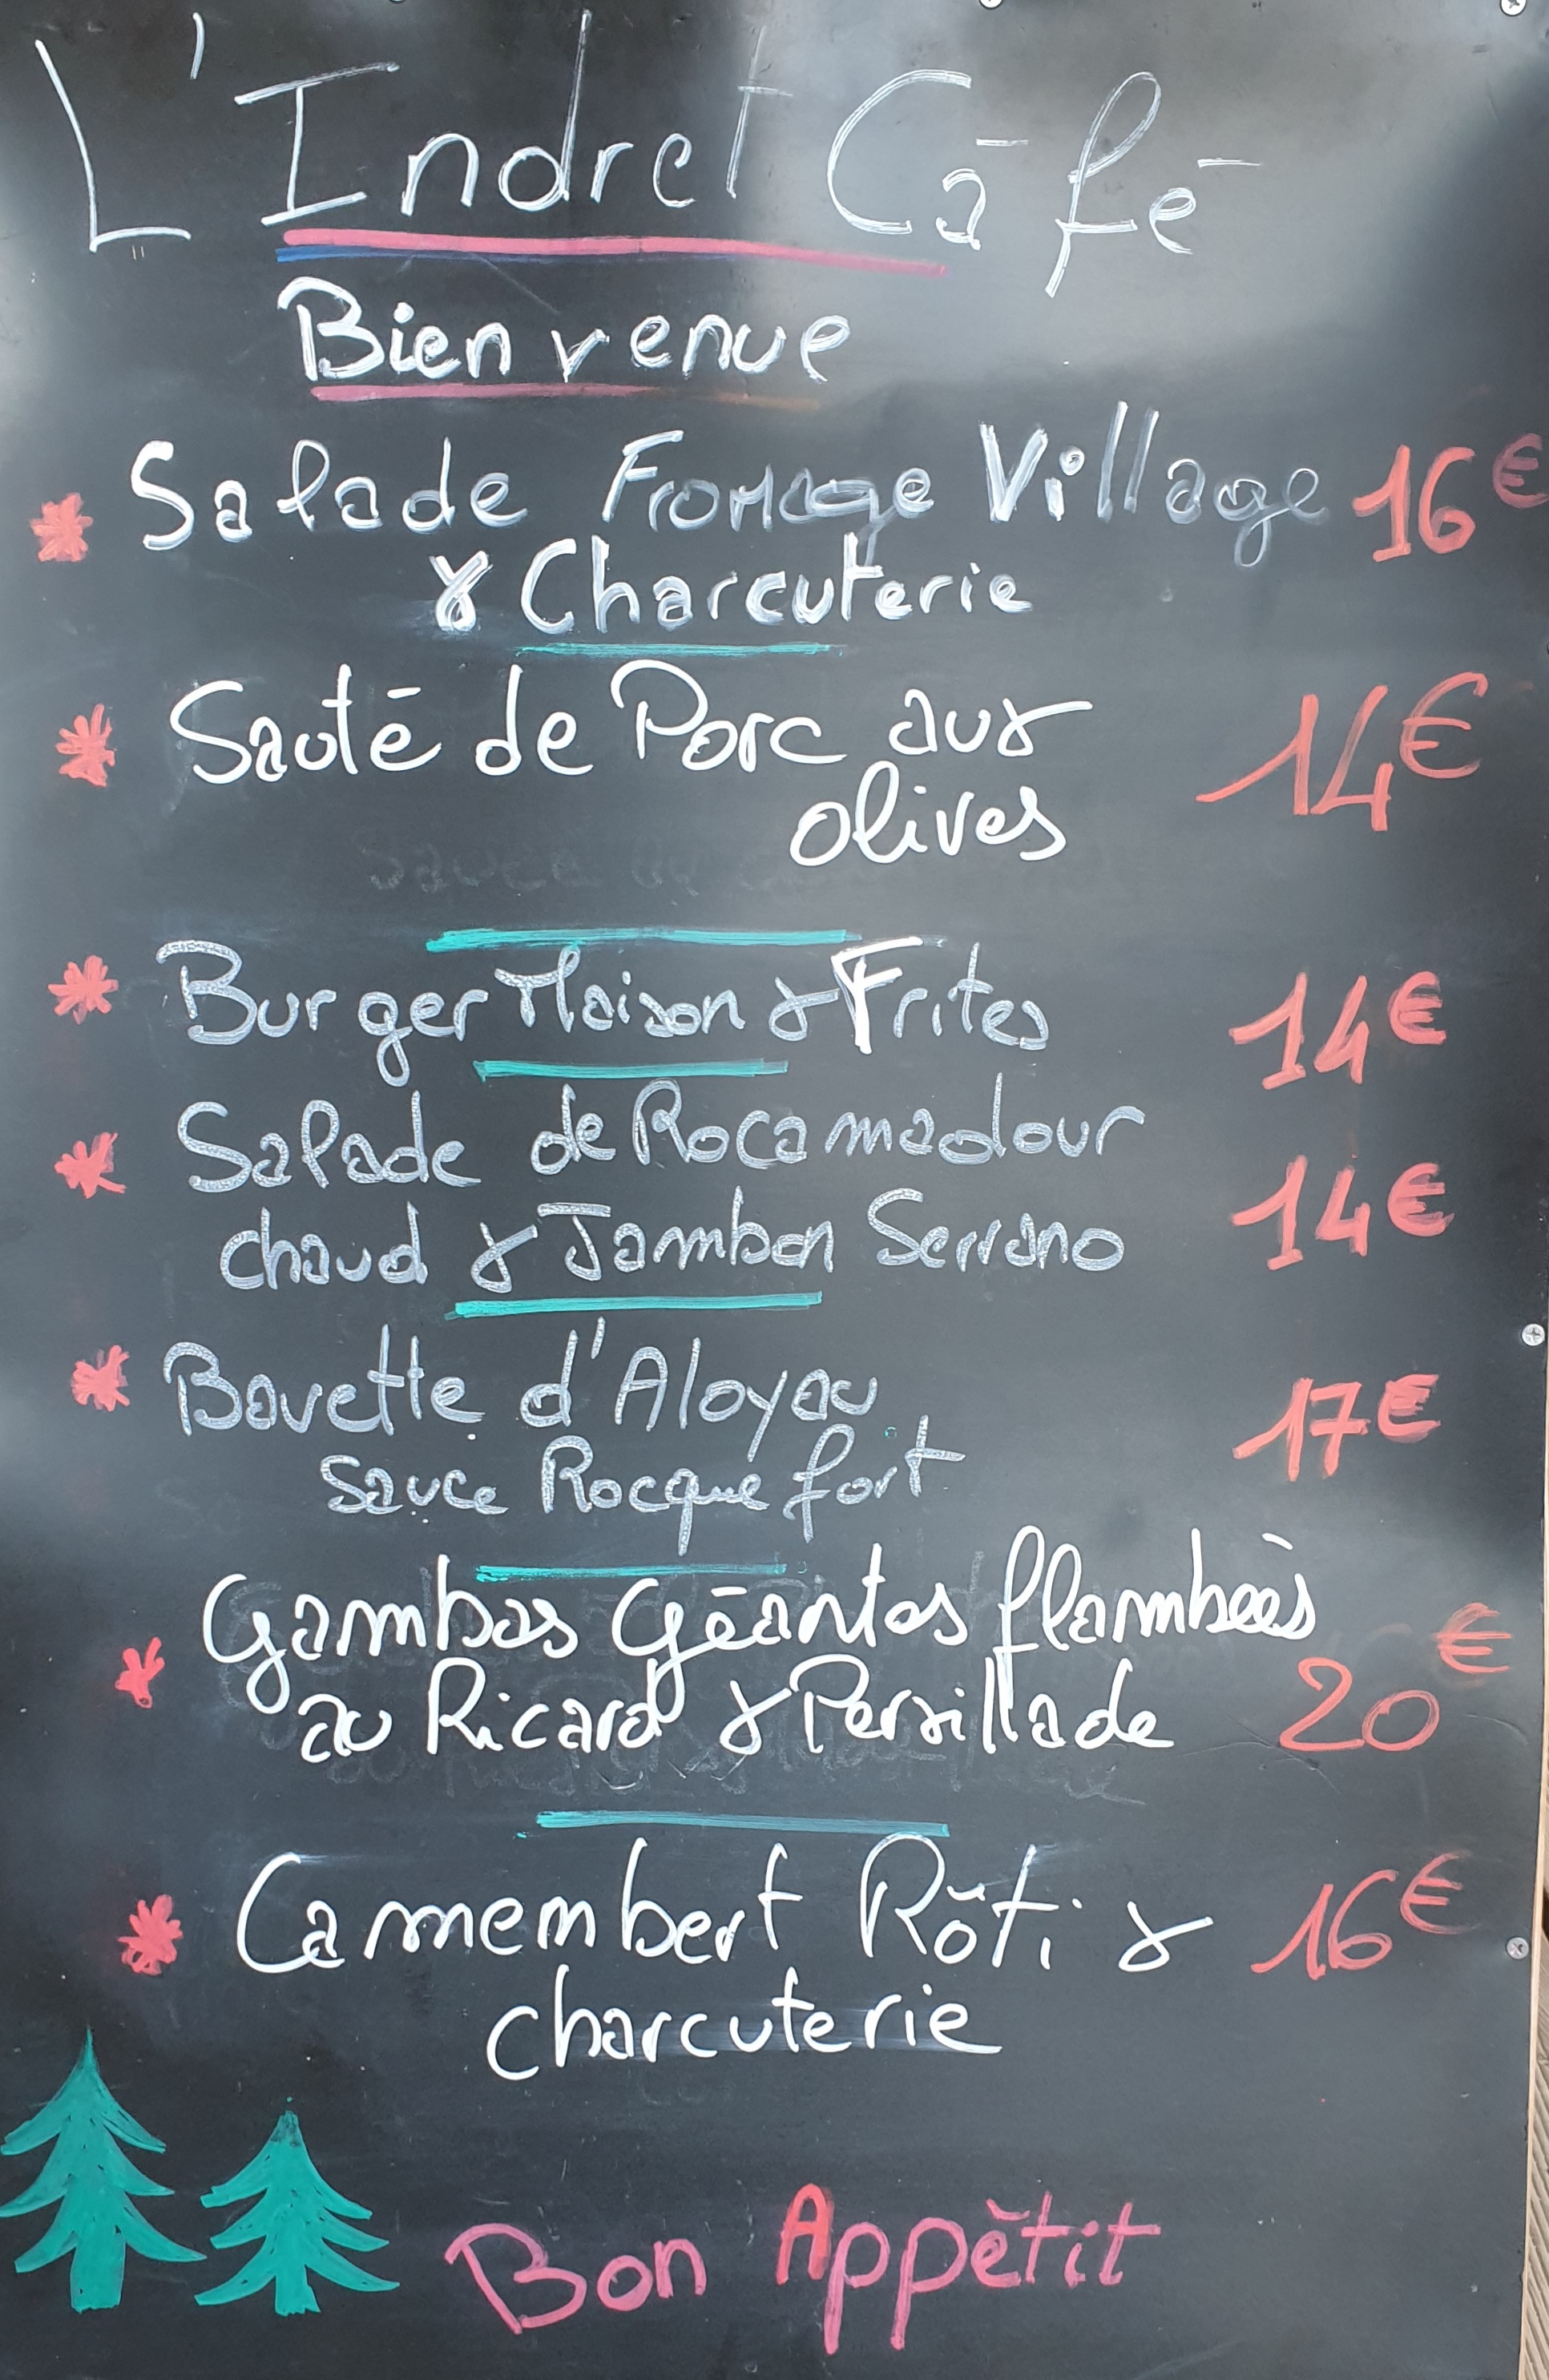 L'Indret Café
Bienvenue
* Salade Fromage Village 16€
& Charcuterie
* Sauté de Porc aux 14€
olives
* Burger Maison & Frites 14€
* Salade de Rocamadour
chaud & Jambon Serrano 14€
* Bavette d'Aloyau 17€
sauce Rocquefort
Gambas Géantes flambées
* au Ricard & Persillade 20€
* Camembert Rôti & 16€
charcuterie
Bon Appétit